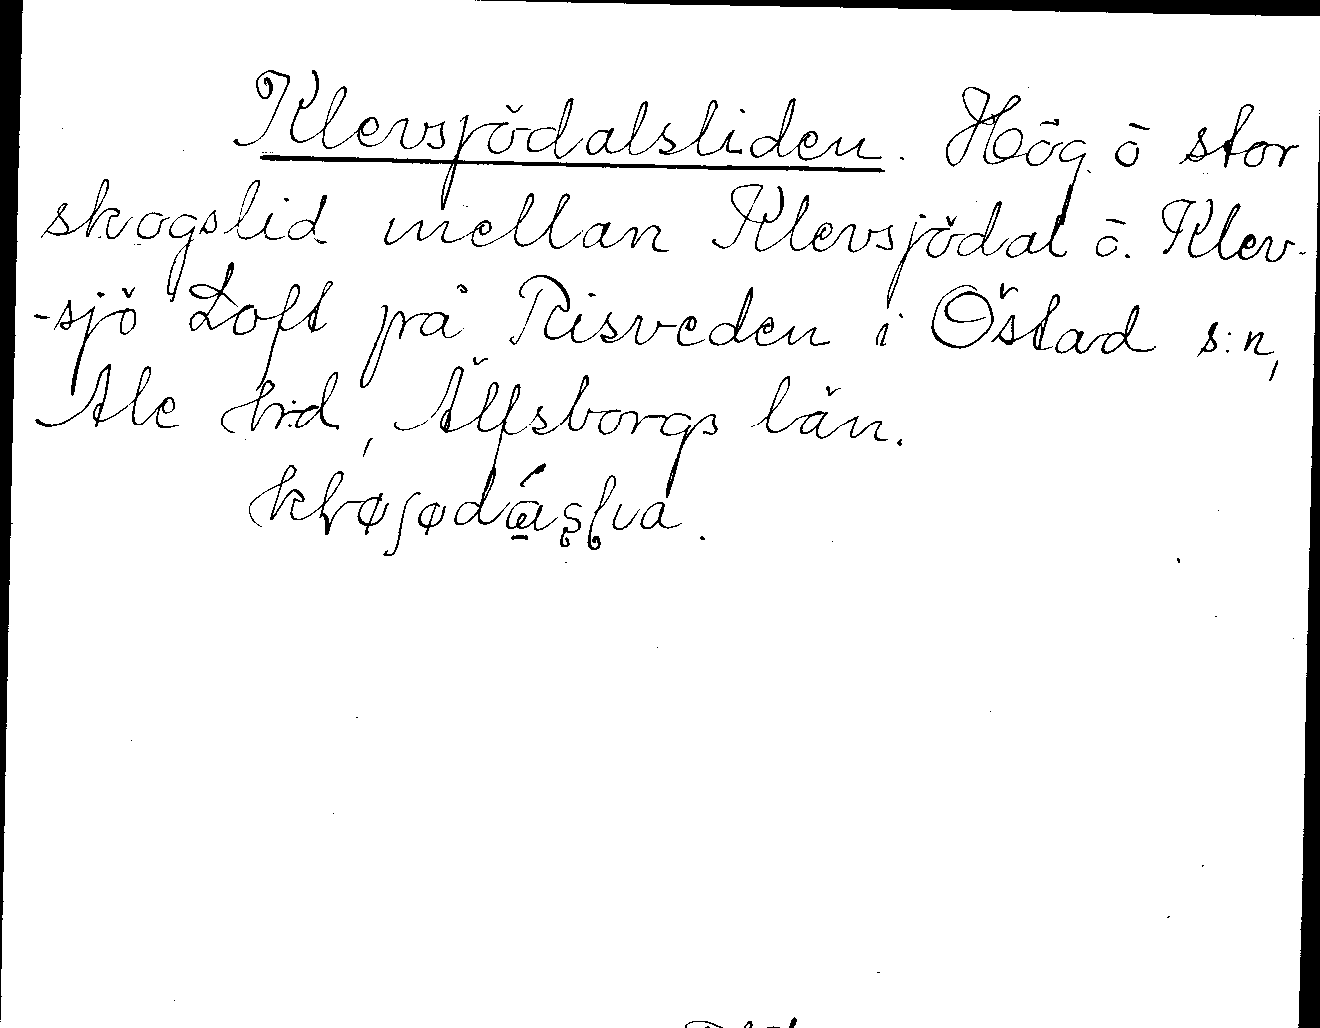 Klevsjödalsliden. Hög ō stor
skogslid mellan Klevsjödal ō. Klev-
-sjö Loft på Risveden i Östad s:n,
Ale hrd, Älfsborgs län.